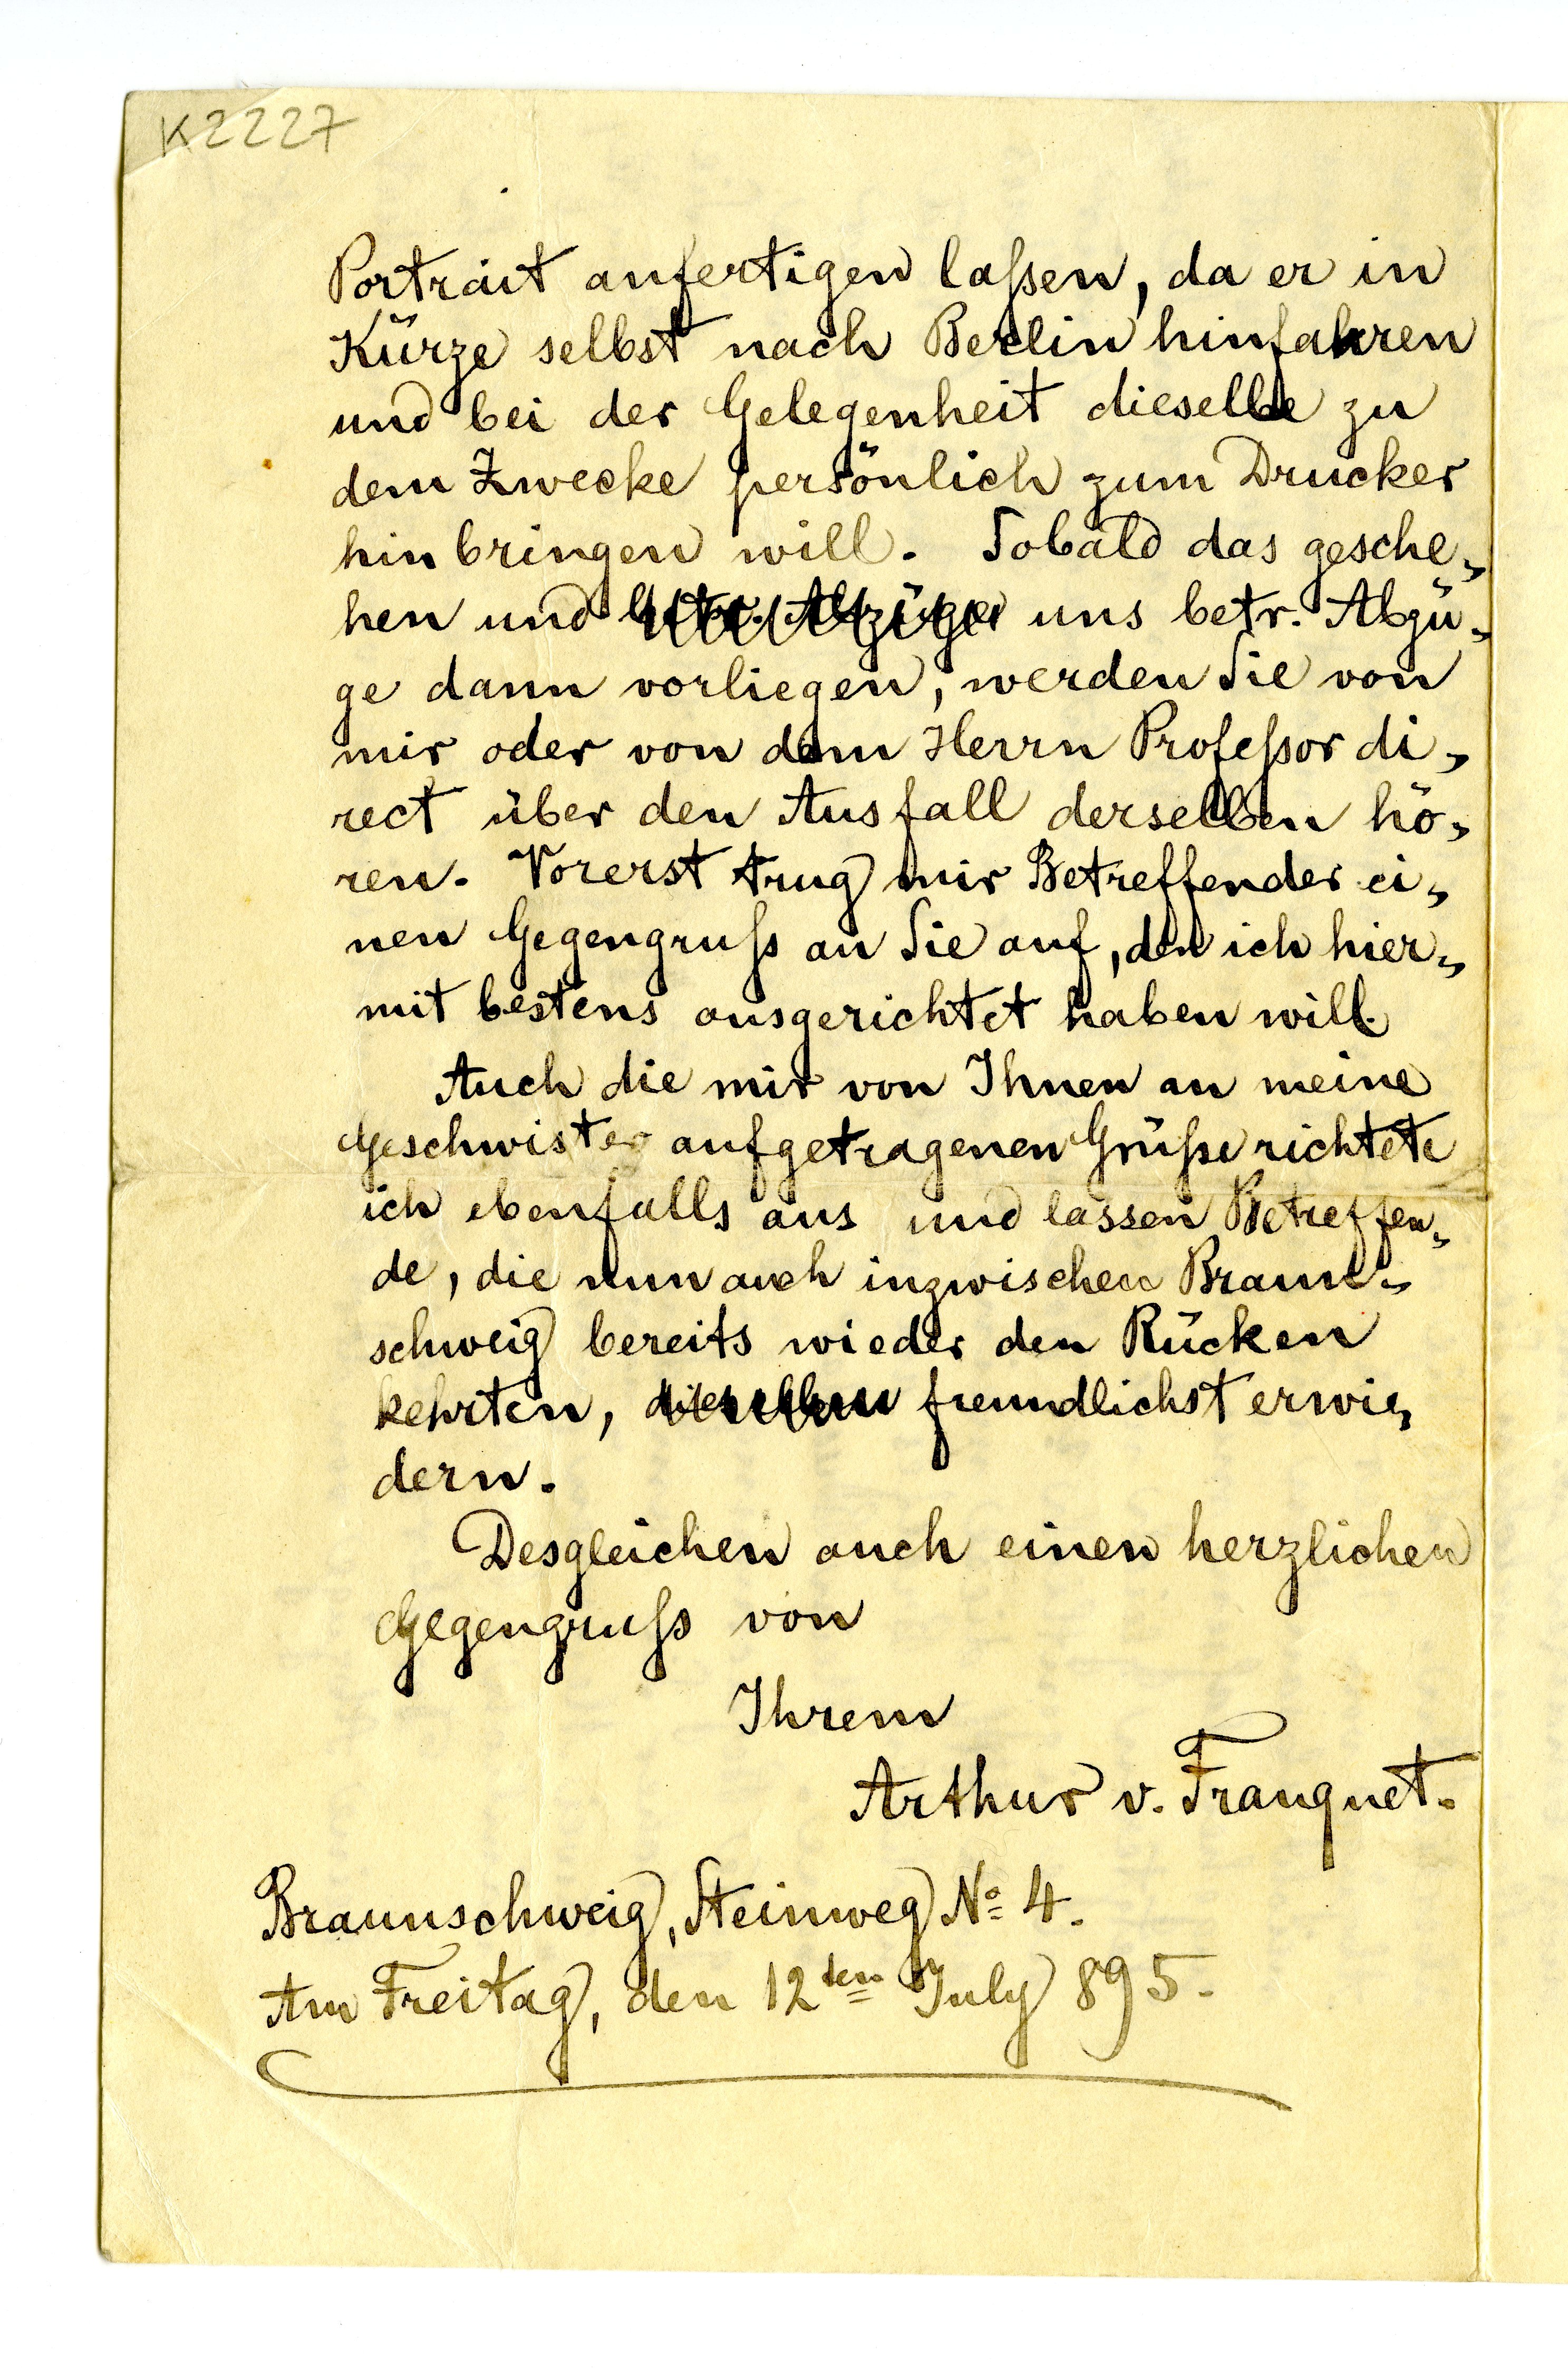 K2227
Portrait anfertigen laßen, da er in
Kürze selbst nach Berlin hinfahren
und bei der Gelegenheit dieselbe zu
dem Zwecke persönlich zum Drucker
hinbringen will. Sobald das gesche„
hen und betr. Abzüge uns betr. Abzü„
ge dann vorliegen, werden Sie von
mir oder von dem Herrn Profeßor di„
rect über den Ausfall derselben hö„
ren. Vorerst trug mir Betreffender ei„
nen Gegengruß an Sie auf, den ich hier„
mit bestens ausgerichtet haben will.
Auch die mir von Ihnen an meine
Geschwister aufgetragenen Grüße richtete
ich ebenfalls aus und lassen Betreffen„
de, die nun auch inzwischen Braun„
schweig bereits wieder den Rücken
kehrten, dieselben freundlichst erwie„
dern.
Desgleichen auch einen herzlichen
Gegengruß von
Ihrem
Arthur v. Franquet.
Braunschweig, Steinweg No 4.
Am Freitag, den 12ten July 895.